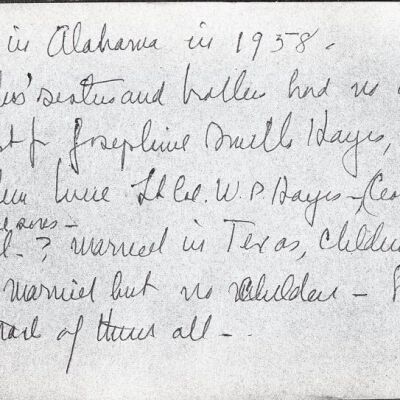 in Alabama in 1958.
sister and brother had no
Josephine Smith Hayes,
were Lt Col. W. P. Hayes -
- ? married in Texas, Children
married but no children -
of them all -